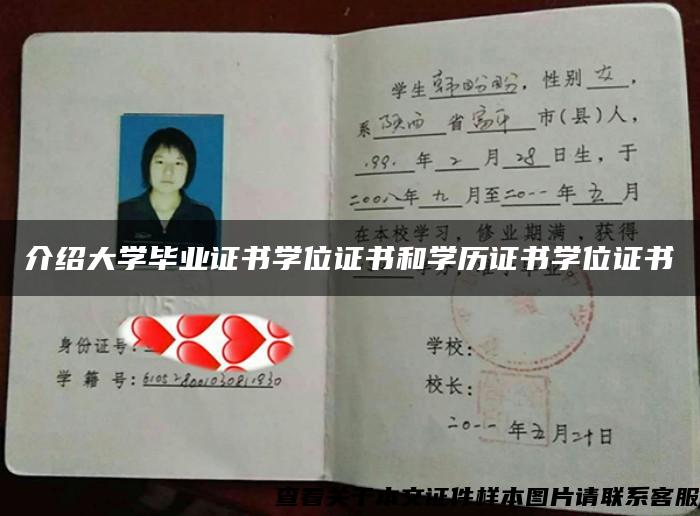 学生韩盼盼，性别女，
系陕西省富平市(县)人，
199.年2月28日生，于
二00八年九月至二0一一年五月
在本校学习，修业期满，获得
介绍大学毕业证书学位证书和学历证书学位证书
005
身份证号：
学籍号：
学校：
校长：
二0一一年五月二十日
查看关于本文证件样本图片请联系客服